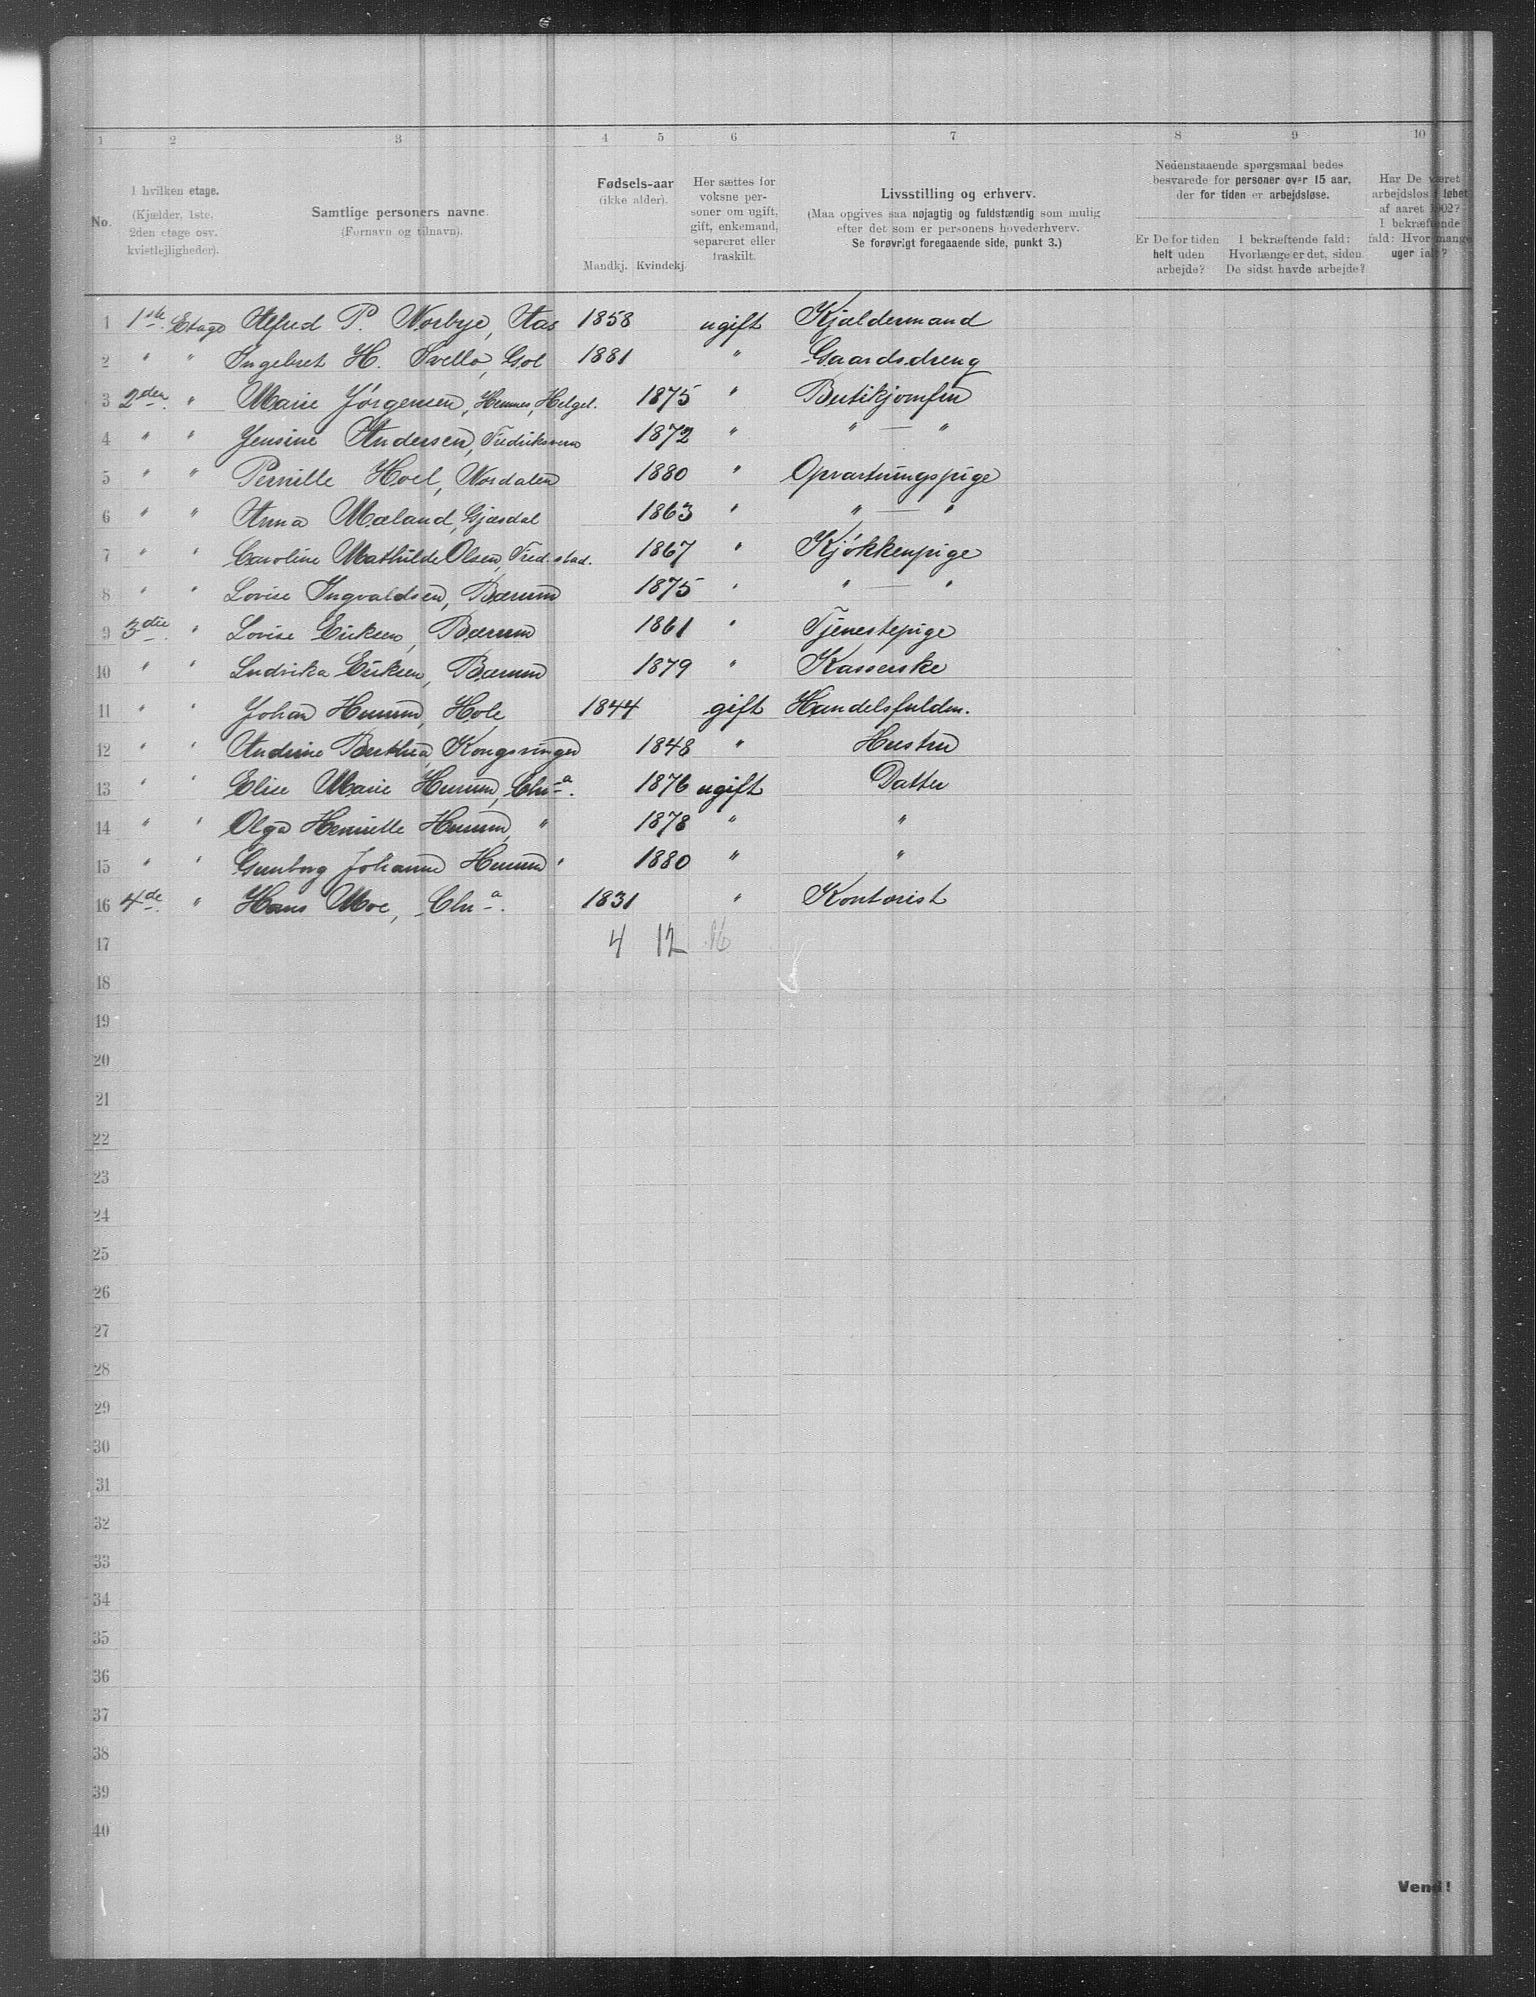 1 2 3 4 5 6 7 8 9 10
No.
I hvilken etage.
(Kjælder, 1ste,
2den etage osv.
kvistlejligheder).
Samtlige personers navne.
(Fornavn og tilnavn).
Fødsels-aar
(ikke alder).
Mandkj. Kvindekj.
Her sættes for
voksne per-
soner om ugift,
gift, enkemand,
separeret eller
fraskilt.
Livsstilling og erhverv.
(Maa opgives saa nøjagtig og fuldstændig som mulig
efter det som er personens hovederhverv.
Se forøvrigt foregaaende side, punkt 3.)
Nedenstaaende spørgsmaal bedes
besvarede for personer over 15 aar,
der for tiden er arbejdsløse.
Er De for tiden
helt uden
arbejde?
I bekræftende fald:
Hvorlænge er det, siden
De sidst havde arbejde?
Har De været
arbejdsløs i løbet
af aaret 1902?
I bekræftende
fald: Hvor mange
uger ialt?
1 1ste Etage Alfred P. Norbye, Aas 1858 ugift Kjældermand
2 " " Ingebret H. Svello, Gol 1881 " Gaardsdreng
3 2den " Marie Jørgensen, Hemnes, Helgel. 1875 " Bestikjomfru
4 " " Jensine Andersen, Fredriksværn 1872 " " — "
5 " " Pernille Hoel, Nordalen 1880 " Opvartningspige
6 " " Anna Mæland, Gjæsdal 1863 " " — "
7 " " Caroline Mathilde Olsen, Fred.stad. 1867 " Kjøkkenpige
8 " " Lovise Ingvaldsen, Bærum 1875 " " — "
9 3die " Lovise Eriksen, Bærum 1861 " Tjenestepige
10 " " Ludvika Eriksen, Bærum 1879 " Kasserske
11 " " Johan Hurum, Hole 1844 gift Handelsfuldm.
12 " " Andrine Berthea, Kongsvinger 1848 " Hustru
13 " " Elise Marie Hurum, Chra. 1876 ugift Datter
14 " " Olga Henriette Hurum, " 1878 " "
15 " " Gunborg Johanne Hurum " 1880 " "
16 4de " Hans Moe, Chra. 1831 " Kontorist
17 4 12 16
18
19
20
21
22
23
24
25
26
27
28
29
30
31
32
33
34
35
36
37
38
39
40
Vend!